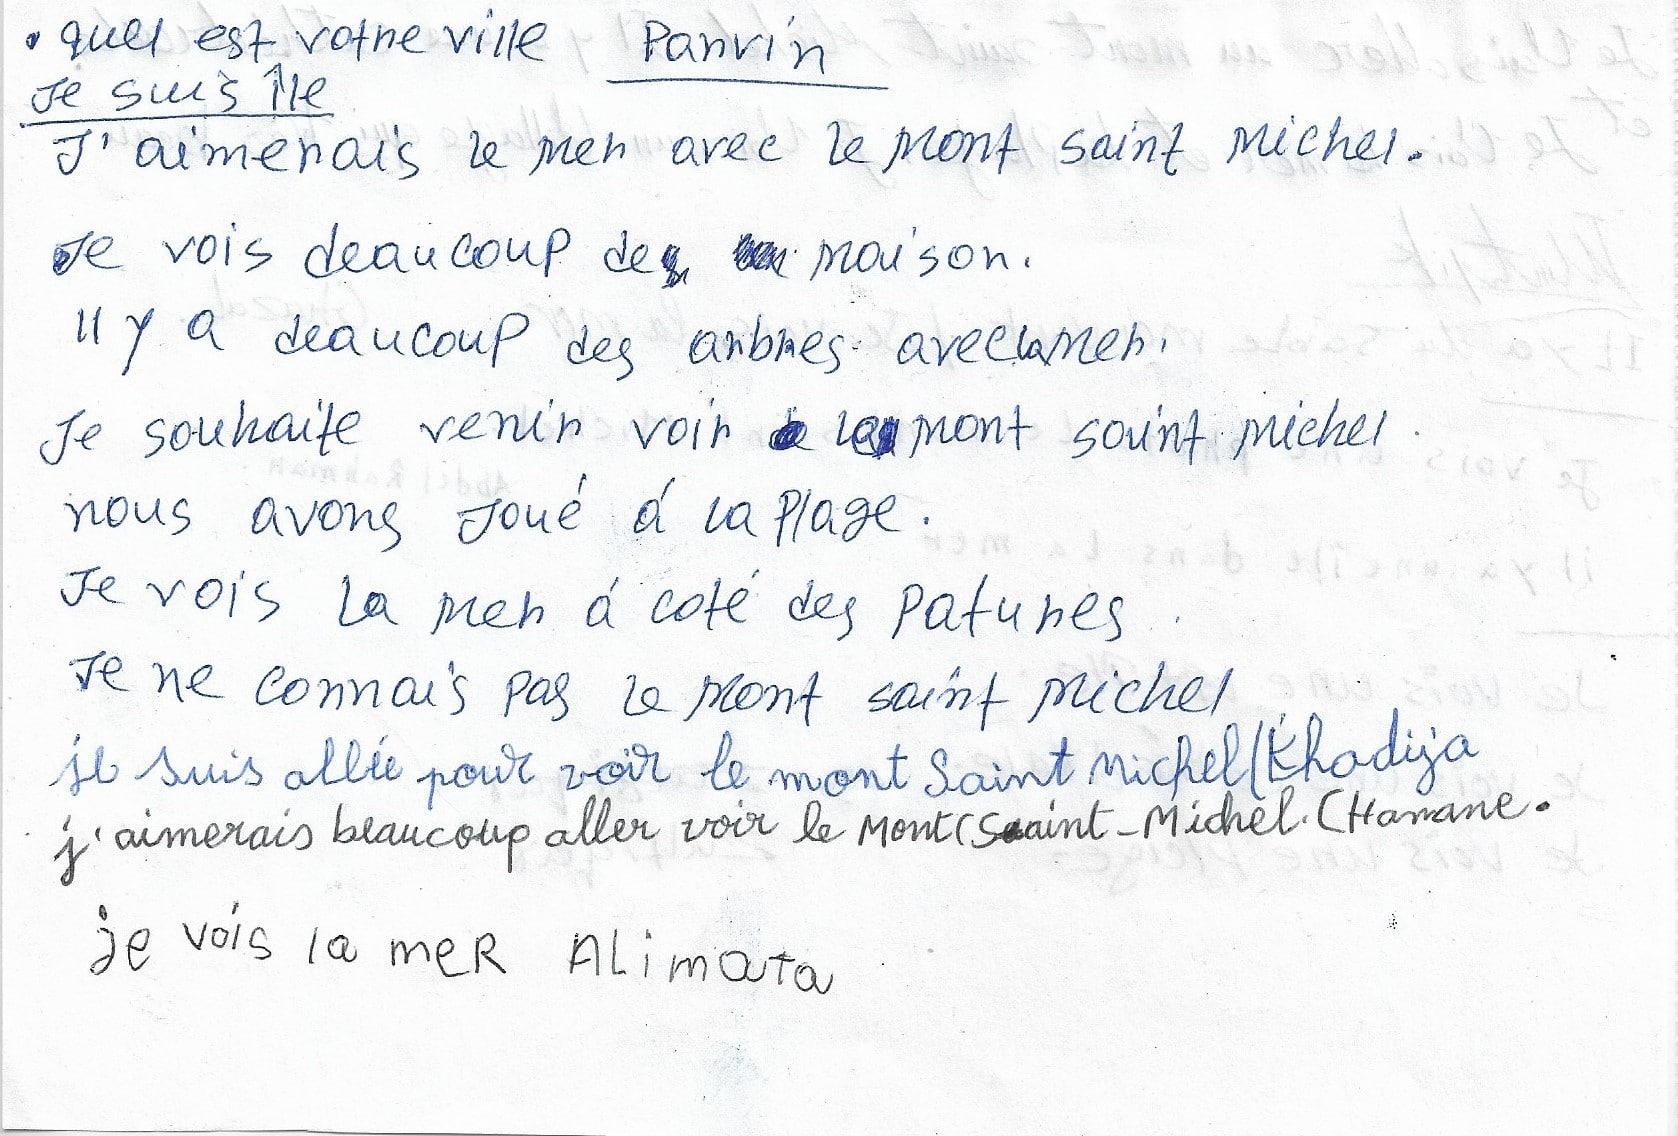 • quel est votre ville Parvin
Je suis île
J'aimerais le mer avec le Mont saint Michel.
Je vois deaucoup des maison.
Il y a deaucoup des arbres avec la mer.
Je souhaite venir voir le mont saint michel.
nous avons Joué á la Plage.
Je vois la mer á coté des Patures.
Je ne connais pas le Mont saint Michel
je suis allée pour voir le mont Saint Michel (Khadija
j'aimerais beaucoup aller voir le Mont (Saint-Michel. (Hanane.
je vois la meR ALimata